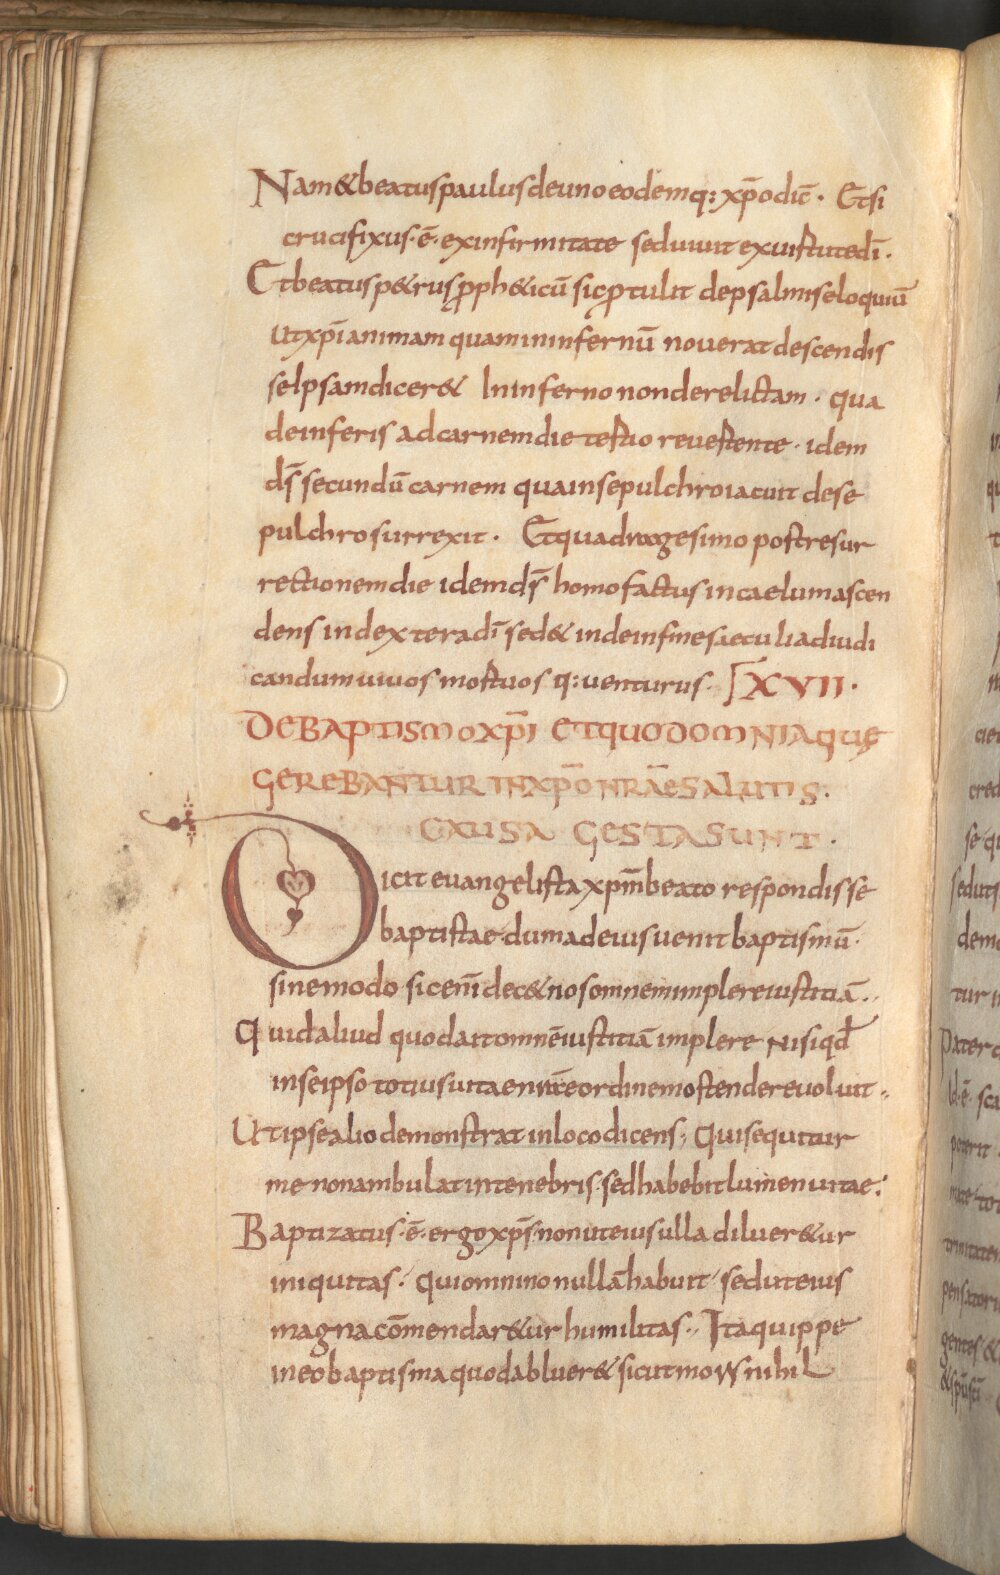 Nam & beatus paulus de uno eodemq: xp̄o dic̄. Et si
crucifixus. ē. ex infirmitate sed uiuit ex uirtute dī.
Et beatus p&rus ꝓph&icū sic ꝓtulit de psalmis eloquiū
Ut xp̄i animam quam in infernū nouerat descendis
se Ipsam dicer& In inferno non derelictam. qua
de inferis ad carnem die tertio reuertente. idem
ds̄ secundū carnem qua in sepulchro iacuit de se
pulchro surrexit. Et quadragesimo post resur
rectionem die idem ds̄ homo factus in caelum ascen
dens in dextera dī sed& inde in fine saeculi ad iudi
candum uiuos mortuos q: uenturus. XVII.
DE BAPTISMO XP̄I ET QUOD OMNIA QUĘ
GEREBANTUR IN XP̄O NR̄AE SALUTIS.
CAUSA GESTA SUNT.
Dicit euangelista xp̄m beato respondisse
baptistae. dum ad eius uenit baptismū.
sine modo. sic enī dec& nos omnem implere iustitiā..
Quid aliud quod ait omnē iustitiā implere Nisi qd̄
in se ipso totius uitae nr̄e ordinem ostendere uoluit.,
Ut ipse alio demonstrat in loco dicens; Qui sequitur
me non ambulat in tenebris. sed habebit lumen uitae:
Baptizatus. ē. ergo xp̄s. non ut eius ulla diluer&ur
iniquitas. Qui omnino nullā habuit. sed ut eius
magna cōmendar&ur humilitas.. Ita quippe
in eo baptisma quod abluer& sicut mors nihil